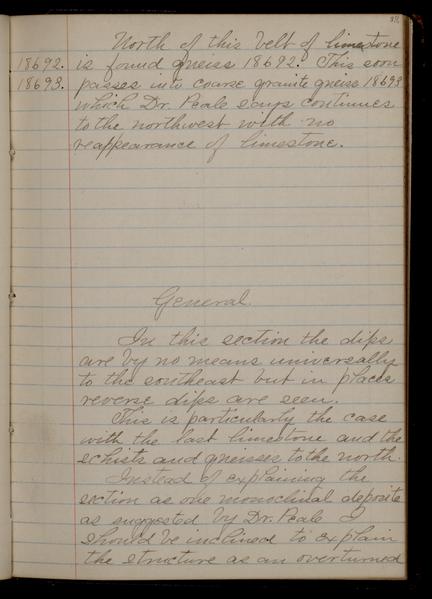 North of this belt of limestone
18692. is found gneiss 18692. This soon
18693. passes into coarse granite gneiss 18693
which Dr. Peale says continues
to the northwest with no
reappearance of limestone.
General.
In this section the dips
are by no means universally
to the southeast but in places
reverse dips are seen.
This is particularly the case
with the last limestone and the
schists and gneisses to the north.
Instead of explaining the
section as one monoclinal deposite
as suggested by Dr. Peale I
should be inclined to explain
the structure as an overturned